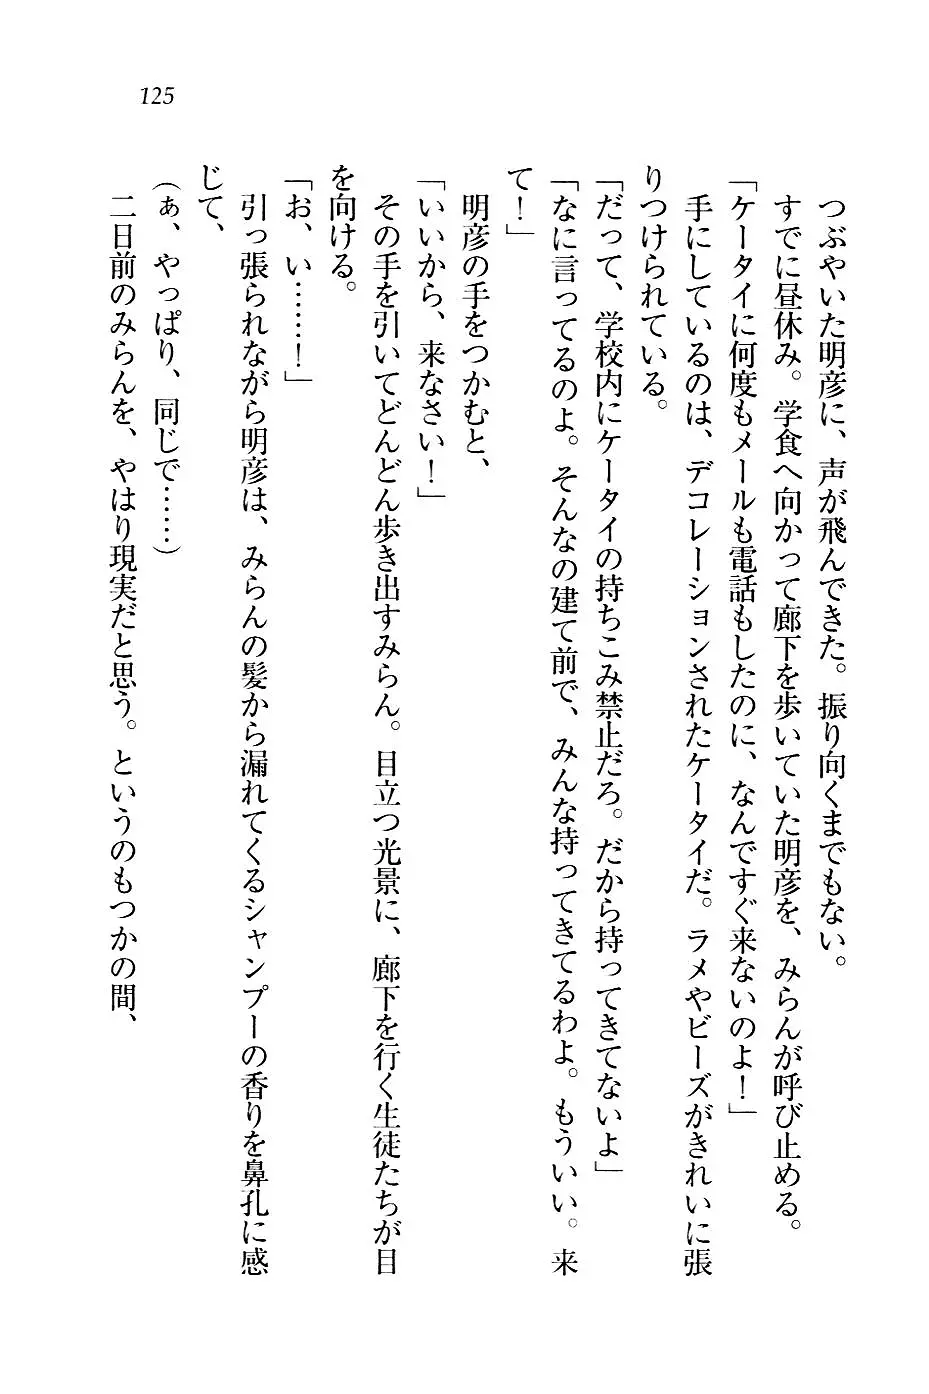 125
つぶやいた明彦に、声が飛んできた。振り向くまでもない。
すでに昼休み。学食へ向かって廊下を歩いていた明彦を、みらんが呼び止める。
「ケータイに何度もメールも電話もしたのに、なんですぐ来ないのよ！」
手にしているのは、デコレーションされたケータイだ。ラメやビーズがきれいに張
りつけられている。
「だって、学校内にケータイの持ちこみ禁止だろ。だから持ってきてないよ」
「なに言ってるのよ。そんなの建て前で、みんな持ってきてるわよ。もういい。来
て！」
明彦の手をつかむと、
「いいから、来なさい！」
その手を引いてどんどん歩き出すみらん。目立つ光景に、廊下を行く生徒たちが目
を向ける。
「お、い……！」
引っ張られながら明彦は、みらんの髪から漏れてくるシャンプーの香りを鼻孔に感
じて、
（ぁ、やっぱり、同じで……）
二日前のみらんを、やはり現実だと思う。というのもつかの間、